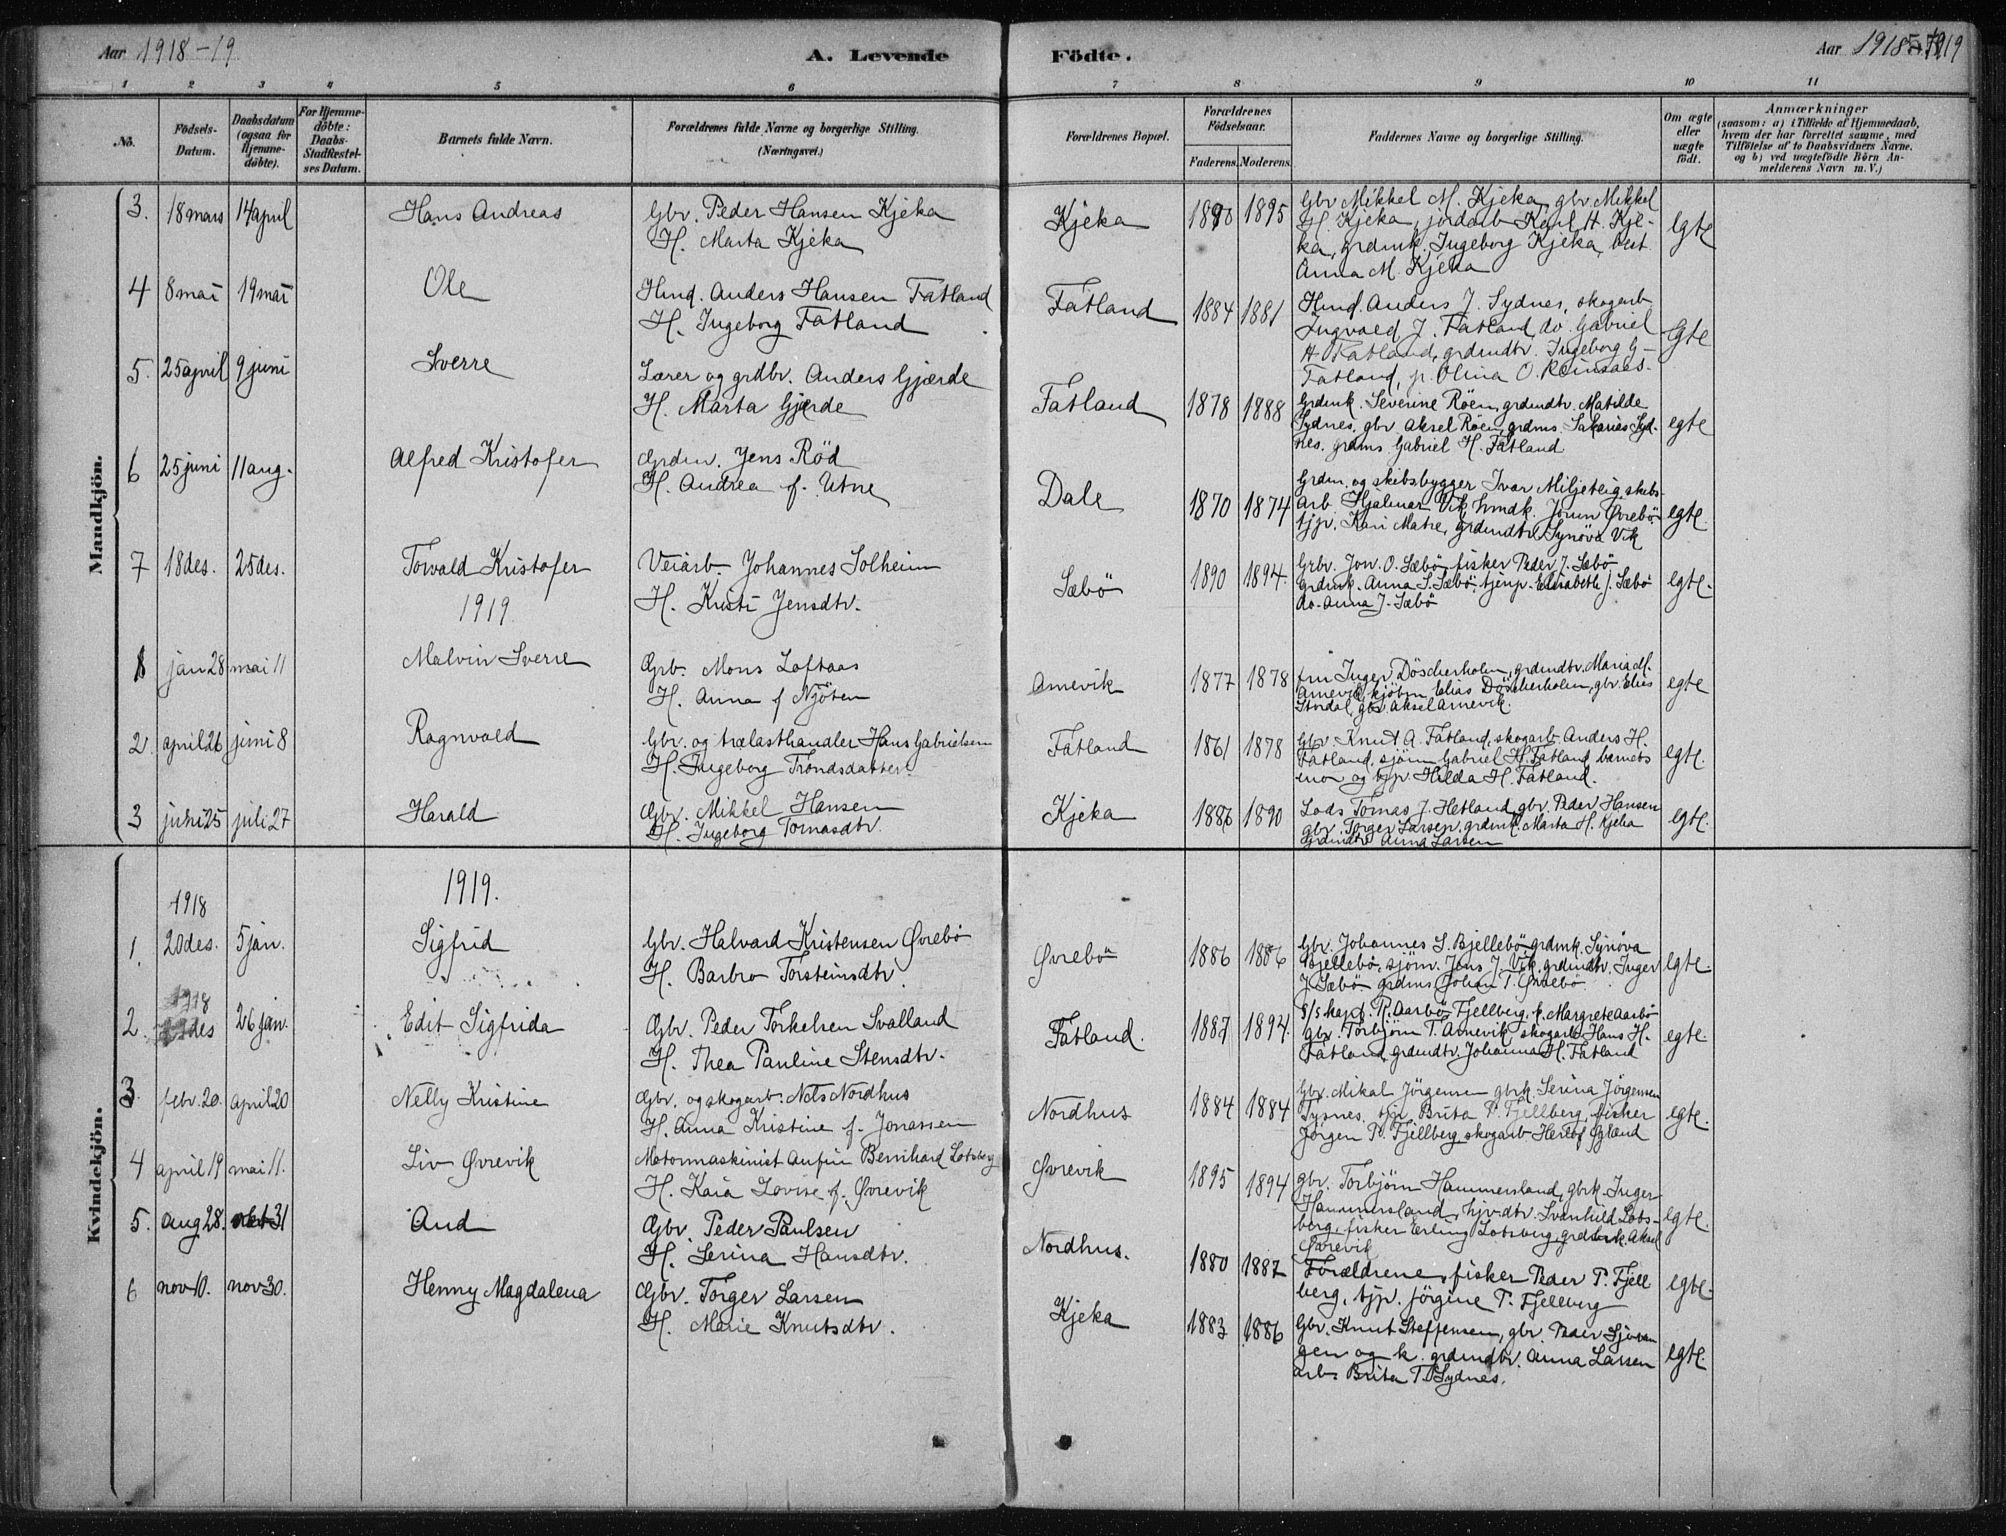 Aar 1918-19
A. Levende
Födte.
Aar 1918-1919
1 2 3 4 5 6 7 8 9 10 11
No.
Födsels-Datum.
Daabsdatum (ogsaa for Hjemme-döbte).
For Hjemme-döbte: Daabs-Stadfæstel-ses Datum.
Barnets fulde Navn.
Forældrenes fulde Navne og borgerlige Stilling. (Næringsvei.)
Forældrenes Bopæl.
Forældrenes Födselsaar.
Faderens. Moderens.
Faddernes Navne og borgerlige Stilling.
Om ægte eller uægte födt.
Anmærkninger
(saasom: a) i Tilfælde af Hjemmedaab,
hvem der har forrettet samme, med
Tilföielse af to Daabsvidners Navne.
og b) ved uægtefödte Börn An-
melderens Navn m. V.)
Mandkjön.
3. 18 mars 14 april Hans Andreas
Gbr. Peder Hansen Kjeka
H. Marta Kjeka
Kjeka 1890 1895
Gbr Mikkel M. Kjeka, gbr. Mikkel
H. Kjeka, jordarb Karl H. Kje-
ka, grdmk. Ingeborg Kjeka, best
Anna M. Kjeka
egte
4 8 mai 19 mai Ole
Hmd. Anders Hansen Fatland
H. Ingeborg Fatland
Fatland 1884 1881
Hmd. Anders J. Sydnes, skogarb
Ingvald J. Fatland do. Gabriel
H Fatland, grdmdtr. Ingeborg G-
Fatland, p. Olina O. Reinsaas.
egte
5. 25 april 9 juni Sverre
Lærer og grdbr. Anders Gjærde
H. Marta Gjerde
Fatland 1878 1888
Grdmk. Severine Röen, grdmdtr. Matilde
Sydnes, gbr. Aksel Röen, grdms. Sakarias Syd-
nes. grdms Gabriel H. Fatland
egte
6 25 juni 11 aug. Alfred Kristofer
Grdm. Jens Röd
H. Andrea f. Utne
Dale 1870 1874
Grdm. og skibsbygger Ivar Miljeteig, skibs-
arb. Hjalmar Vik, hmdk. Jorun Øvrebö
tjp. Kari Matre, grdmdtr Synöva Vik
egte.
7 18 des. 25 des. Torvald Kristofer
Veiarb. Johannes Solheim
H. Kristi Jensdtr.
Sæbö 1890 1894.
Grbr. Jon O. Sæbö, fisker Peder J. Sæbö
grdmk. Anna S. Sæbö, tjenp. Elisabeth J. Sæbö
do. Anna J. Sæbö
egte.
1919
1 jan 28 mai 11 Malvin Sverre
Grb. Mons Loftaas
H. Anna f Njöten
Arnevik 1877 1878
fru Inger Döscherholm, grdmdtr. Maria M.
Arnevik, kjöbm Elias Döscherholm, gbr. Elias
Stordal, gbr Aksel Arnevik.
egte
2. april 26 juni 8 Ragnvald
Gbr. og trælasthandler Hans Gabrielsen
H. Ingeborg Trondsdatter.
Fatland 1861 1878
Gbr. Knut A. Fatland, skogarb. Anders H.
Fatland, sjöm Gabriel H. Fatland barnets
mor og tjp. Hilda H. Fatland.
egte.
3 juni 25 juli 27 Harald
Gbr. Mikkel Hansen
H. Ingeborg Tomasdtr.
Kjeka 1886 1890
Lods Tomas J. Hetland, gbr. Peder Hansen
gbr. Torger Larsen, grdmk. Marta H. Kjeka
Grdmdtr Anna Larsen
egte.
Kvindekjön.
1919.
1918
1. 20 des. 5 jan. Sigfrid
Gbr. Halvard Kristensen Øvrebö
H. Barbro Torsteinsdtr.
Øvrebö 1886 1886
Gbr. Johannes S. Bjellebö grdmk. Synöva
Bjellebö, sjöm. Jens J. Vik, grdmdtr. Inger
J. Sæbö grdms Johan T. Øvrebö.
egte.
1918
2. des 26 jan. Edit Sigfrida
Gbr. Peder Torkelsen Svalland
H. Thea Pauline Stensdtr.
Fatland. 1887 1894
S/s kapt. P. Aarbö Fjellberg, k. Margrete Aarbö
gbr. Torbjörn T. Arnevik skogarb. Hans H.
Fatland, grdmdtr. Johanna H. Fatland
egte.
3 febr. 20. april 20 Nelly Kristine
Gbr. og skogarb. Nils Nordhus
H. Anna Kristine f. Jonassen
Nordhus 1884 1884
Gbr. Mikal Jörgensen gbrk. Serina Jörgensen
Tysnes, tjp. Brita P. Fjellberg, fisker
Jörgen P. Fjellberg, skogarb Herlof
egte.
4 april 19 mai 11. Liv Øvrevik
Motormaskinist Anfin Bernhard Lotsberg
H. Kaia Lovise f. Øvrevik
Øvrevik 1895 1894
Gbr. Torbjörn Hammersland, gbrk. Inger
Hammersland, hjv.dtr. Svanhild Lots-
berg, fisker Erling Lotsberg, grdbrk. Aksel
Øvrevik
egte.
5. aug 28. 31 Aud
Gbr. Peder Paulsen
H. Serina Hansdtr.
Nordhus. 1880 1887
Forældrene, fisker Peder P. Fjell
berg, tjp. Jörgine P. Fjellberg
egte.
6 nov 10. nov 30. Henny Magdalena
Gbr. Torger Larsen
H. Marie Knutsdtr.
Kjeka 1883 1886
Gbr. Knut Steffensen, gbr. Peder Sjövan
gen og k. grdmdtr. Anna Larsen
arb. Brita T. Sydnes.
egte.